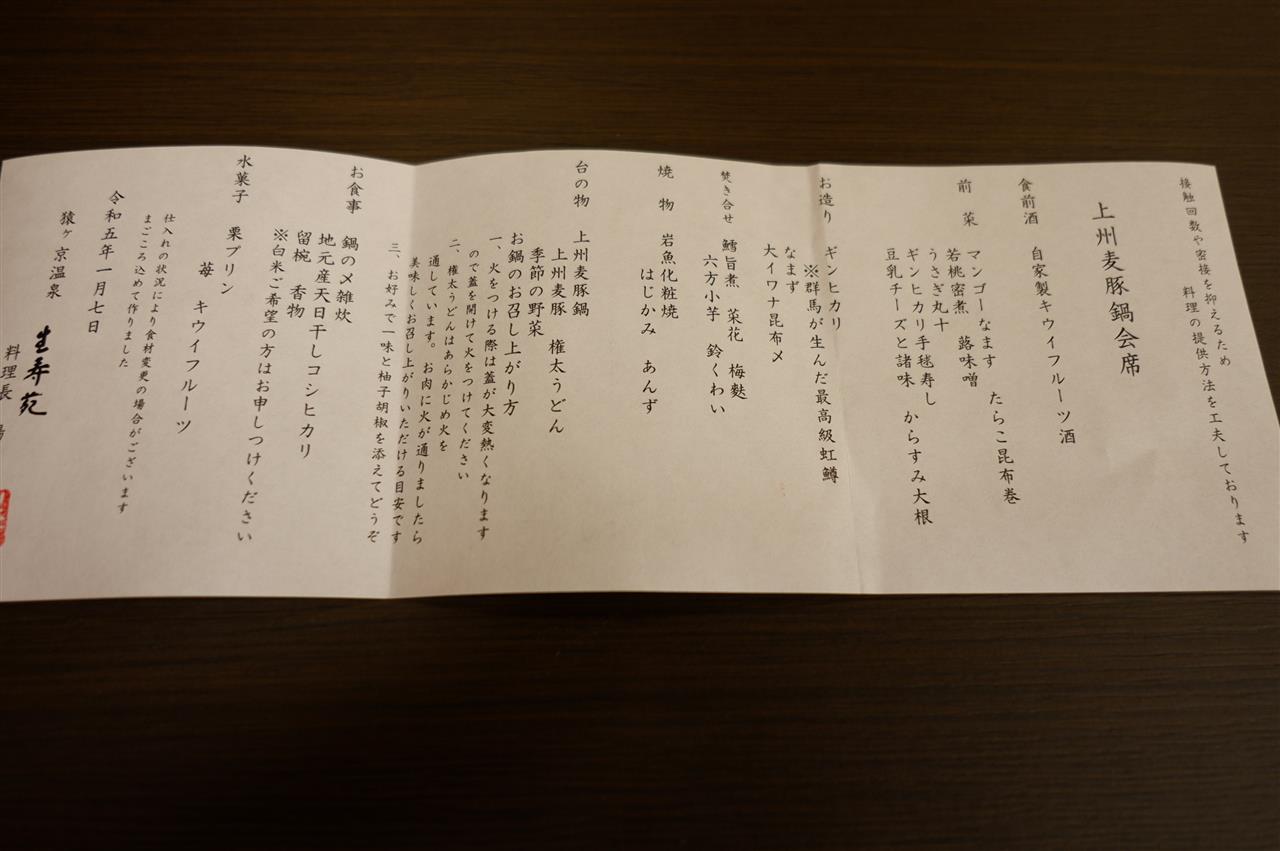 接触回数や密接を抑えるため
料理の提供方法を工夫しております
上州麦豚鍋会席
食前酒 自家製キウイフルーツ酒
前菜 マンゴーなます たらこ昆布巻
若桃密煮 蕗味噌
うさぎ丸十
ギンヒカリ手毬寿し
豆乳チーズと諸味 からすみ大根
お造り ギンヒカリ
※群馬が生んだ最高級虹鱒
なまず
大イワナ昆布〆
焚き合せ 鱈旨煮 菜花 梅麩
六方小芋 鈴くわい
焼物 岩魚化粧焼
はじかみ あんず
台の物 上州麦豚鍋
上州麦豚 権太うどん
季節の野菜
お鍋のお召し上がり方
一、火をつける際は蓋が大変熱くなります
ので蓋を開けて火をつけてください
二、権太うどんはあらかじめ火を
通しています。お肉に火が通りましたら
美味しくお召し上がりいただける目安です
三、お好みで一味と柚子胡椒を添えてどうぞ
お食事 鍋の〆雑炊
地元産天日干しコシヒカリ
留椀 香物
※白米ご希望の方はお申しつけください
水菓子 栗プリン
苺 キウイフルーツ
仕入れの状況により食材変更の場合がございます
まごころ込めて作りました
令和五年一月七日
猿ヶ京温泉 生寿苑
料理長